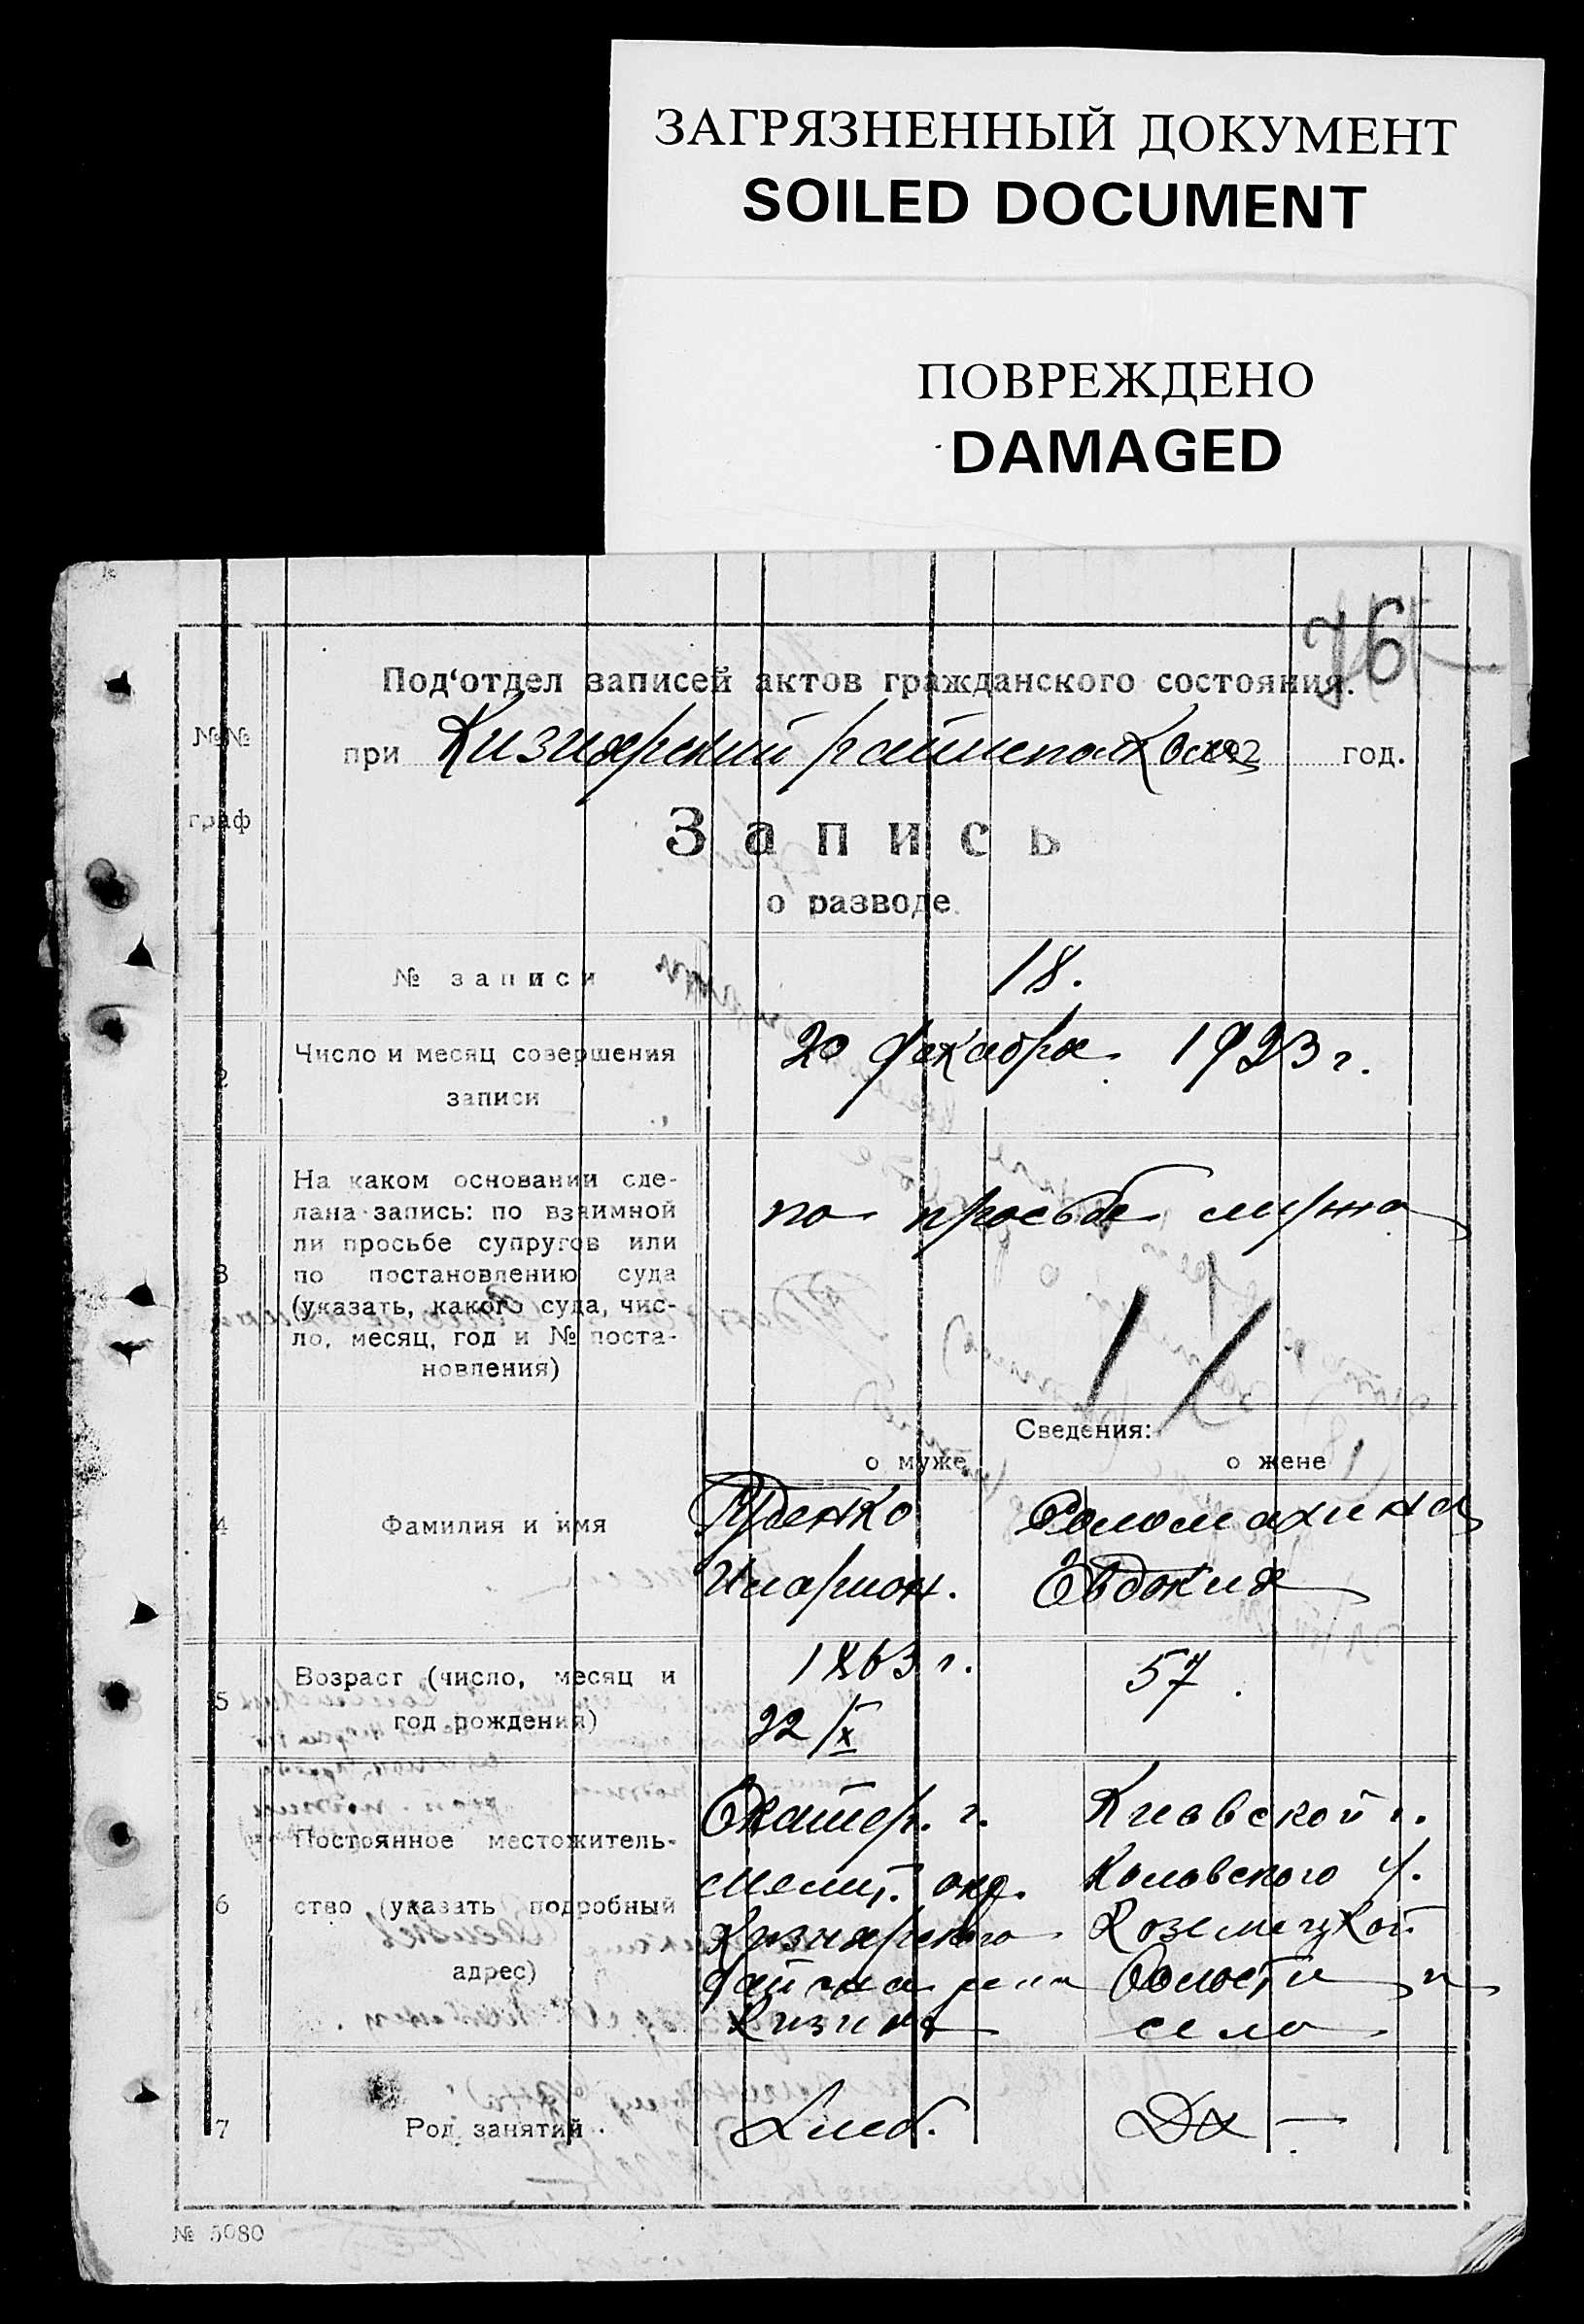 ЗАГРЯЗНЕННЫЙ ДОКУМЕНТ
SOILED DOCUMENT
ПОВРЕЖДЕНО
DAMAGED
76
Под‘отдел записей актов гражданского состояния.
№№ граф
при Кизиярский райисполком 192 год.
Запись
о разводе.
№ записи 18.
2 Число и месяц совершения 20 декабря 1923 г.
записи
На каком основании сде-
лана запись: по взаимной по просьбе мужа
ли просьбе супругов или
3 по постановлению суда
(указать, какого суда, чис-
ло, месяц, год и № поста-
новления)
Сведения:
о муже о жене
4 Фамилия и имя Руденко Соломахина
Иларион. Евдокия
Возраст (число, месяц и 1863 г. 57.
5 год рождения) 22/X
Екатер. г. Киевской г.
Постоянное местожитель-
Мелит. окр. у.
6 ство (указать подробный Кизиярского
адрес) района села волости и
Кизияр село
7 Род занятий. Хлеб. Дх —
№ 5080